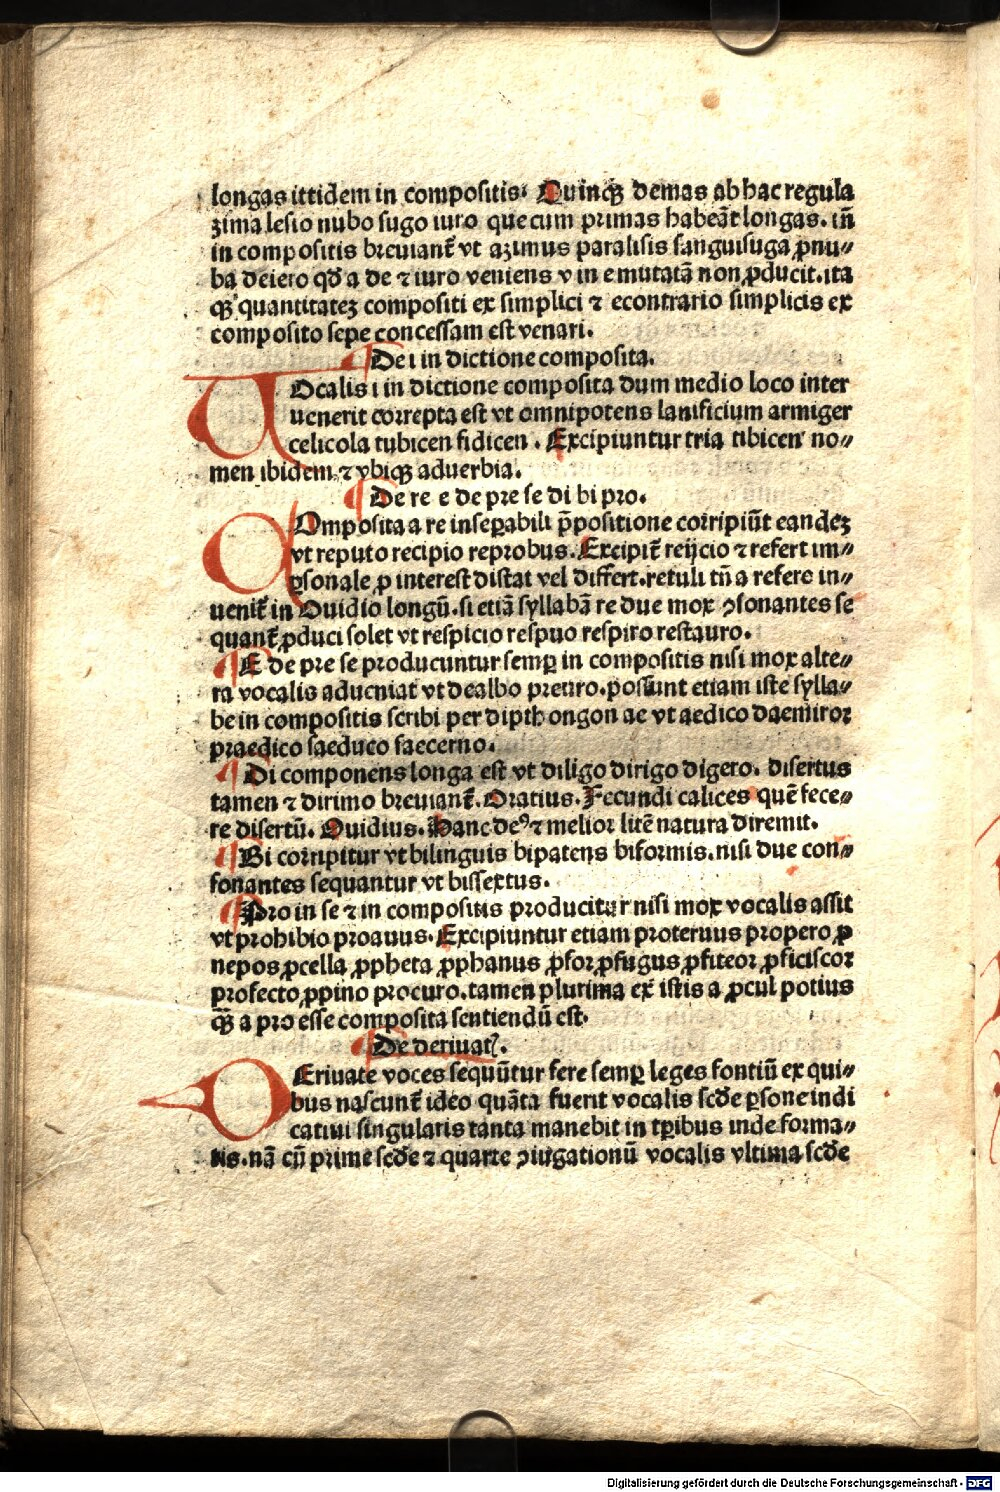 longas ittidem in compositis: Quinqꝫ demas ab hac regula
zima lesio nubo sugo iuro que cum primas habeāt longas. in̄
in compositis breuiant᷑ vt azimus paralisis sanguisuga ꝓnu⸗
ba deiero qđ a de ⁊ iuro veniens v in e mutatā non ꝓducit. ita
qꝫ quantitatez compositi ex simplici ⁊ econtrario simplicis ex
composito sepe concessam est venari.
De i in dictione composita.
VOcalis i in dictione composita dum medio loco inter
uenerit correpta est vt omnipotens lanificium armiger
celicola tubicen fidicen. Excipiuntur tria tibicen no⸗
men ibidem ⁊ vbiqꝫ aduerbia.
De re e de pre se di bi pro.
COmposita a re inseꝑabili p̄positione corripiūt eandez
vt reputo recipio reprobus. Excipit᷑ reijcio ⁊ refert im⸗
ꝑsonale ꝓ interest distat vel differt. retuli tn̄ a refero in⸗
uenit᷑ in Ouidio longū. si etiā syllabā re due mox ꝯsonantes se
quant᷑ ꝓduci solet vt respicio respuo respiro restauro.
¶ E de pre se producuntur semꝑ in compositis nisi mox alte⸗
ra vocalis adueniat vt dealbo preuro. possunt etiam iste sylla⸗
be in compositis scribi per dipthongon ae vt aedico daemiror
praedico saeduco saecerno.
¶ Di componens longa est vt diligo dirigo digero. disertus
tamen ⁊ dirimo breuiant᷑. Oratius. Fecundi calices quē fece⸗
re disertū. Ouidius. Hanc deꝰ ⁊ melior litē natura diremit.
¶ Bi corripitur vt bilinguis bipatens biformis. nisi due con⸗
sonantes sequantur vt bissextus.
¶ Pro in se ⁊ in compositis producitur nisi mox vocalis assit
vt prohibio proauus. Excipiuntur etiam proteruus propero ꝓ
nepos ꝓcella ꝓpheta ꝓphanus ꝓfor ꝓfugus ꝓfiteor ꝓficiscor
profecto ꝓpino procuro. tamen plurima ex istis a ꝓcul potius
qꝫ̄ a pro esse composita sentiendū est.
De deriuatꝭ.
DEriuate voces sequūtur fere semꝑ leges fontiū ex qui⸗
bus nascunt᷑ ideo quāta fuerit vocalis scđe ꝑsone indi
catiui singularis tanta manebit in tꝑibus inde forma⸗
tis. nā cū prime scđe ⁊ quarte ꝯiugationū vocalis vltima scđe
Digitalisierung gefördert durch die Deutsche Forschungsgemeinschaft - DFG